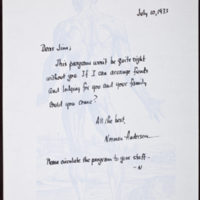 July 10, 1933
Dear Jim,
This program won't be quite right
without you. If I can arrange funds
and lodging for you and your family
could you come?
All the best,
Norman Anderson
Please circulate the program to your staff.
- N